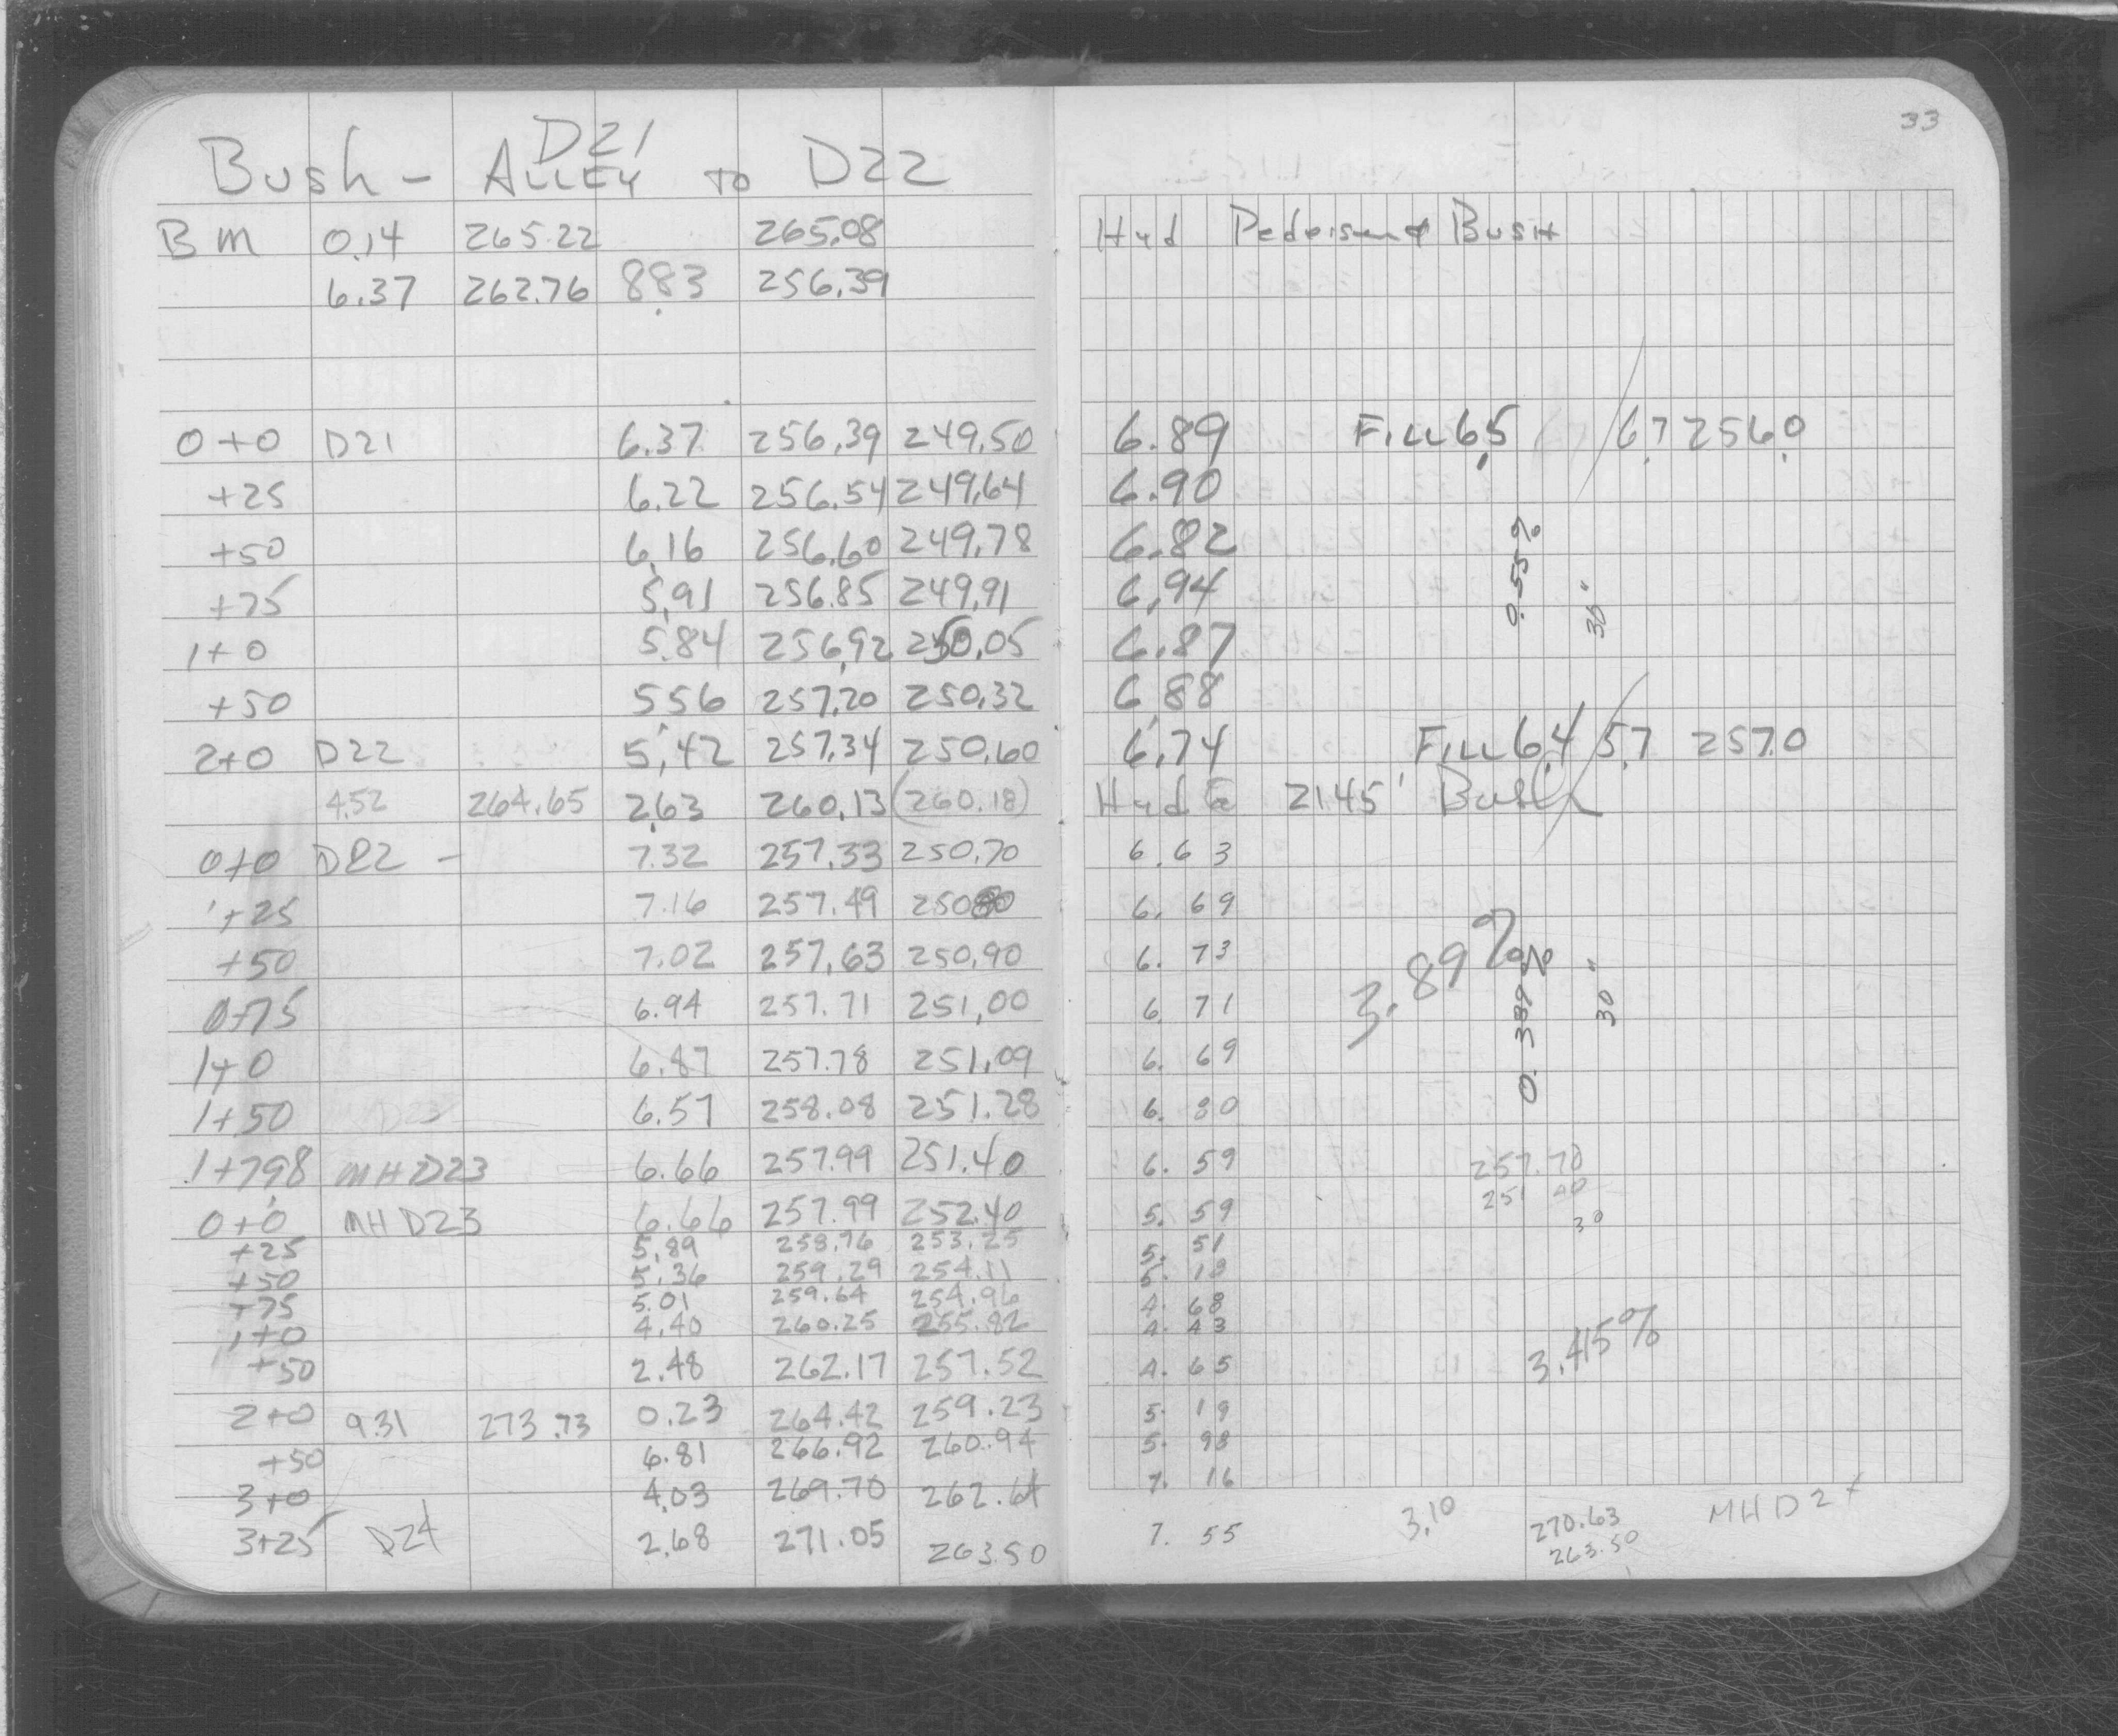 33
D21
Bush - ALLEY to D22
BM 0.14 265.22 265.08 Hyd Pedersen & Bush
6.37 262.76 8.83 256.39
0+0 D21 6.37 256.39 249.50 6.89 FILL 6.5 / 6.7 256.0
+25 6.22 256.54 249.64 6.90
+50 6.16 256.60 249.78 6.82 0.55%
+75 5.91 256.85 249.91 6.94 30"
1+0 5.84 256.92 250.05 6.87
+50 5.56 257.20 250.32 6.88
2+0 D22 5.42 257.34 250.60 6.74 FILL 6.4 / 5.7 257.0
4.52 264.65 2.63 260.13 (260.18) Hyd @ 2145' Bush
0+0 D22 - 7.32 257.33 250.70 6.63
+25 7.16 257.49 250.80 6.69
+50 7.02 257.63 250.90 6.73 3.89%
0+75 6.94 257.71 251.00 6.71 0.389% 30"
1+0 6.87 257.78 251.09 6.69
1+50 D23 6.57 258.08 251.28 6.80
1+798 MHD23 6.66 257.99 251.40 6.59 257.70
251 40
30
0+0 MHD23 6.66 257.99 252.40 5.59
+25 5.89 258.76 253.25 5.51
+50 5.36 259.29 254.11 5.18
+75 5.01 259.64 254.96 4.68
1+0 4.40 260.25 255.82 4.43
+50 2.48 262.17 257.52 4.65 3.415%
2+0 9.31 273.73 0.23 264.42 259.23 5.19
+50 6.81 266.92 260.94 5.98
3+0 4.03 269.70 262.64 7.16
3+25 D24 2.68 271.05 263.50 7.55 3.10 270.63 MHD24
263.50